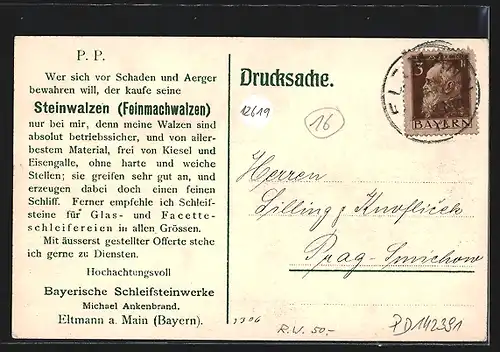 P. P.
Wer sich vor Schaden und Aerger
bewahren will, der kaufe seine
Steinwalzen (Feinmachwalzen)
nur bei mir, denn meine Walzen sind
absolut betriebssicher, und von aller-
bestem Material, frei von Kiesel und
Eisengalle, ohne harte und weiche
Stellen; sie greifen sehr gut an, und
erzeugen dabei doch einen feinen
Schliff. Ferner empfehle ich Schleif-
steine für Glas- und Facette-
schleifereien in allen Grössen.
Mit äusserst gestellter Offerte stehe
ich gerne zu Diensten.
Hochachtungsvoll
Bayerische Schleifsteinwerke
Michael Ankenbrand.
Eltmann a. Main (Bayern).
Drucksache.
12619
16
3
BAYERN
EL
Herren
Lilling & Knoflíček
Prag-Smichow
R.W. 50.-
PD142391